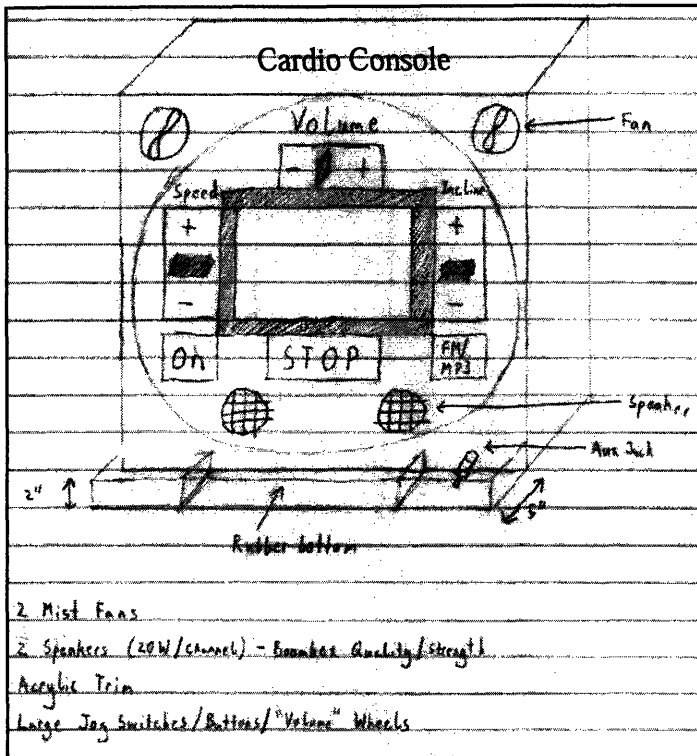 Cardio Console
Fan
Volume
- +
Speed
Incline
+ +
- -
On STOP FM/
MP3
Speaker
Aux Jack
2"
5"
Rubber bottom
2 Mist Fans
2 Speakers (20W/channel) - Boombox Quality/Strength
Acrylic Trim
Large Jog Switches/Buttons/"Volume" Wheels